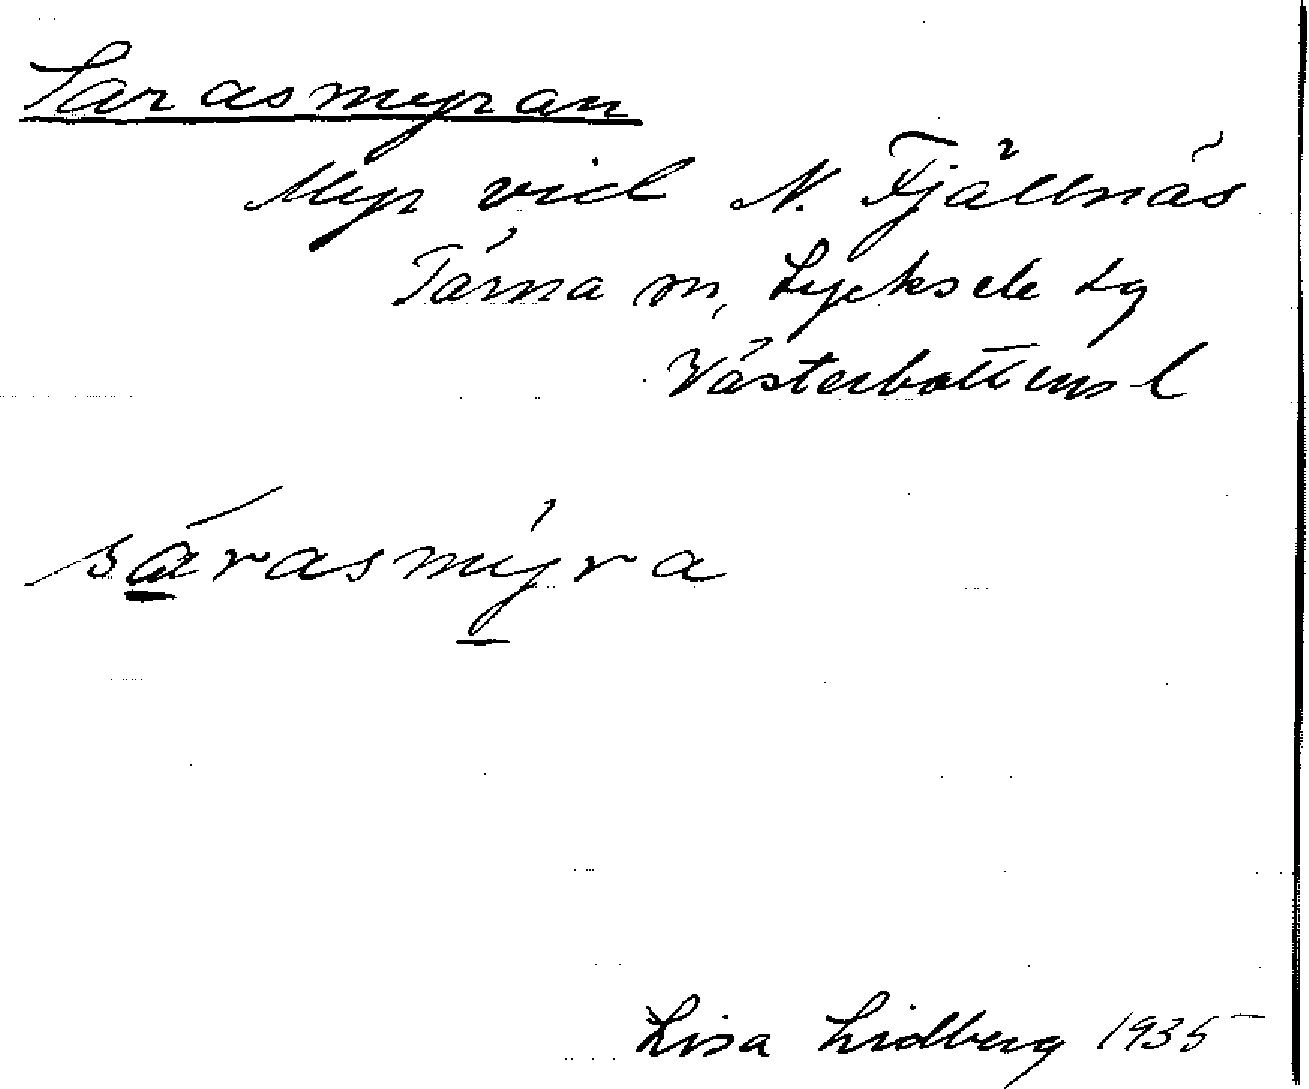 Sarasmyran
Myr vid N. Fjällnäs
Tärna sn, Lycksele lg
Västerbottens l
sárasmýra
Lisa Lidberg 1935